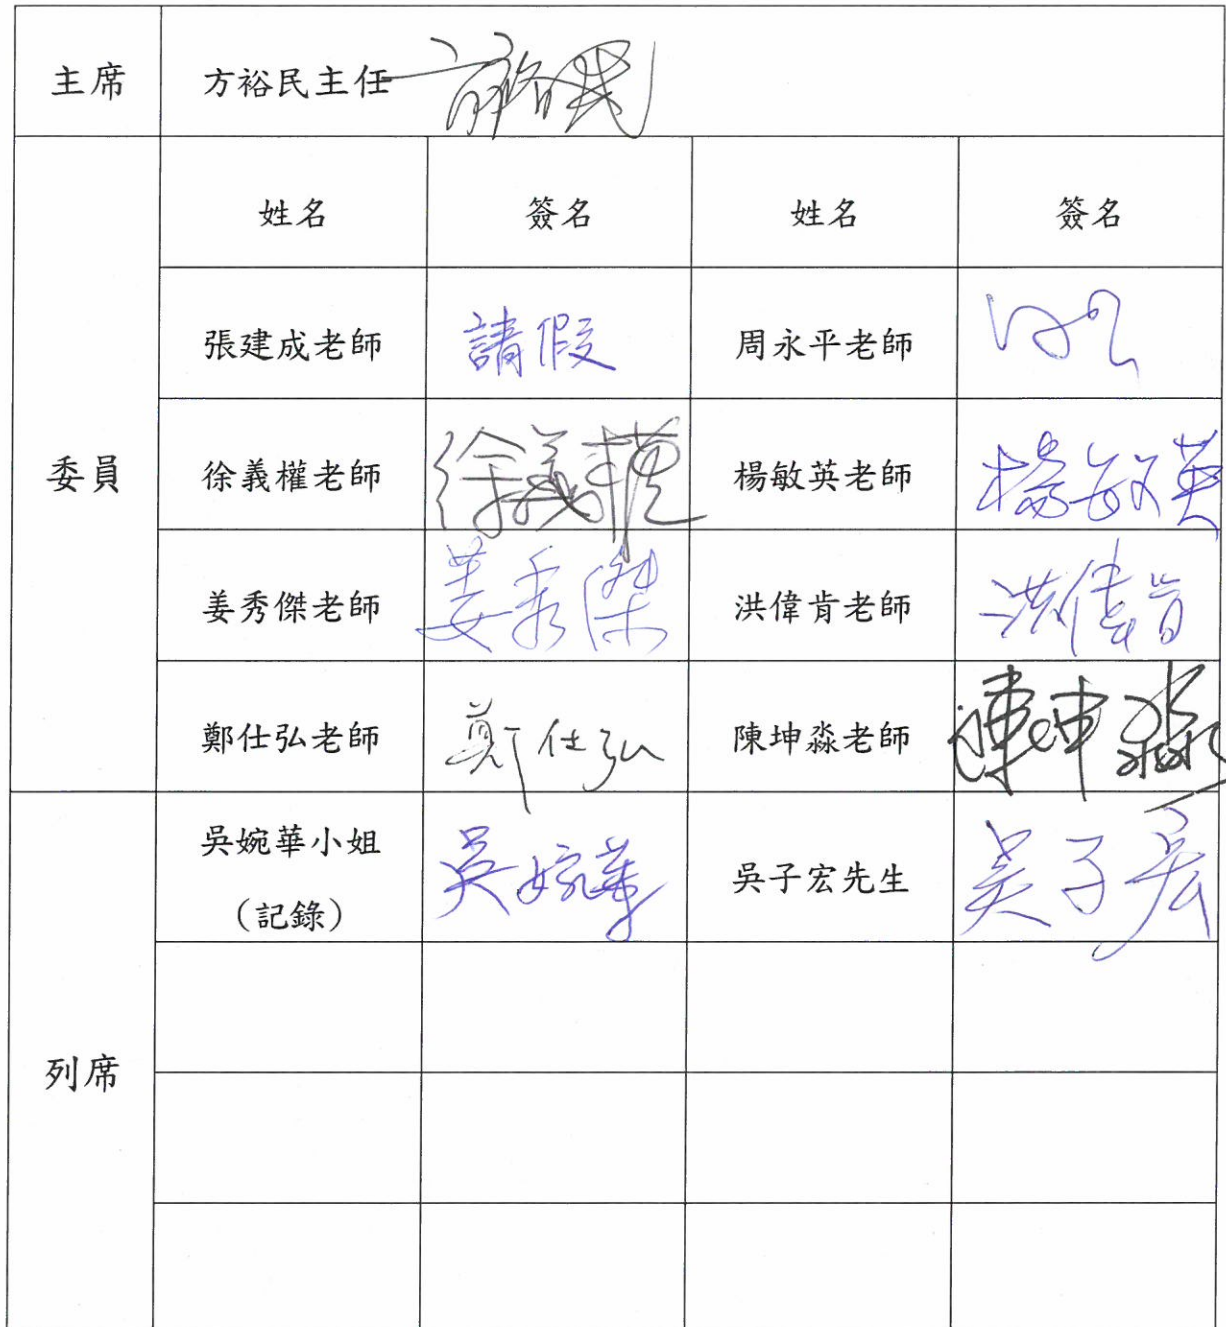 主席 方裕民主任 方裕民
姓名 簽名 姓名 簽名
張建成老師 請假 周永平老師
委員 徐義權老師 徐義權 楊敏英老師 楊敏英
姜秀傑老師 姜秀傑 洪偉肯老師 洪偉肯
鄭仕弘老師 鄭仕弘 陳坤淼老師 陳坤淼
吳婉華小姐 吳婉華 吳子宏先生 吳子宏
(記錄)
列席